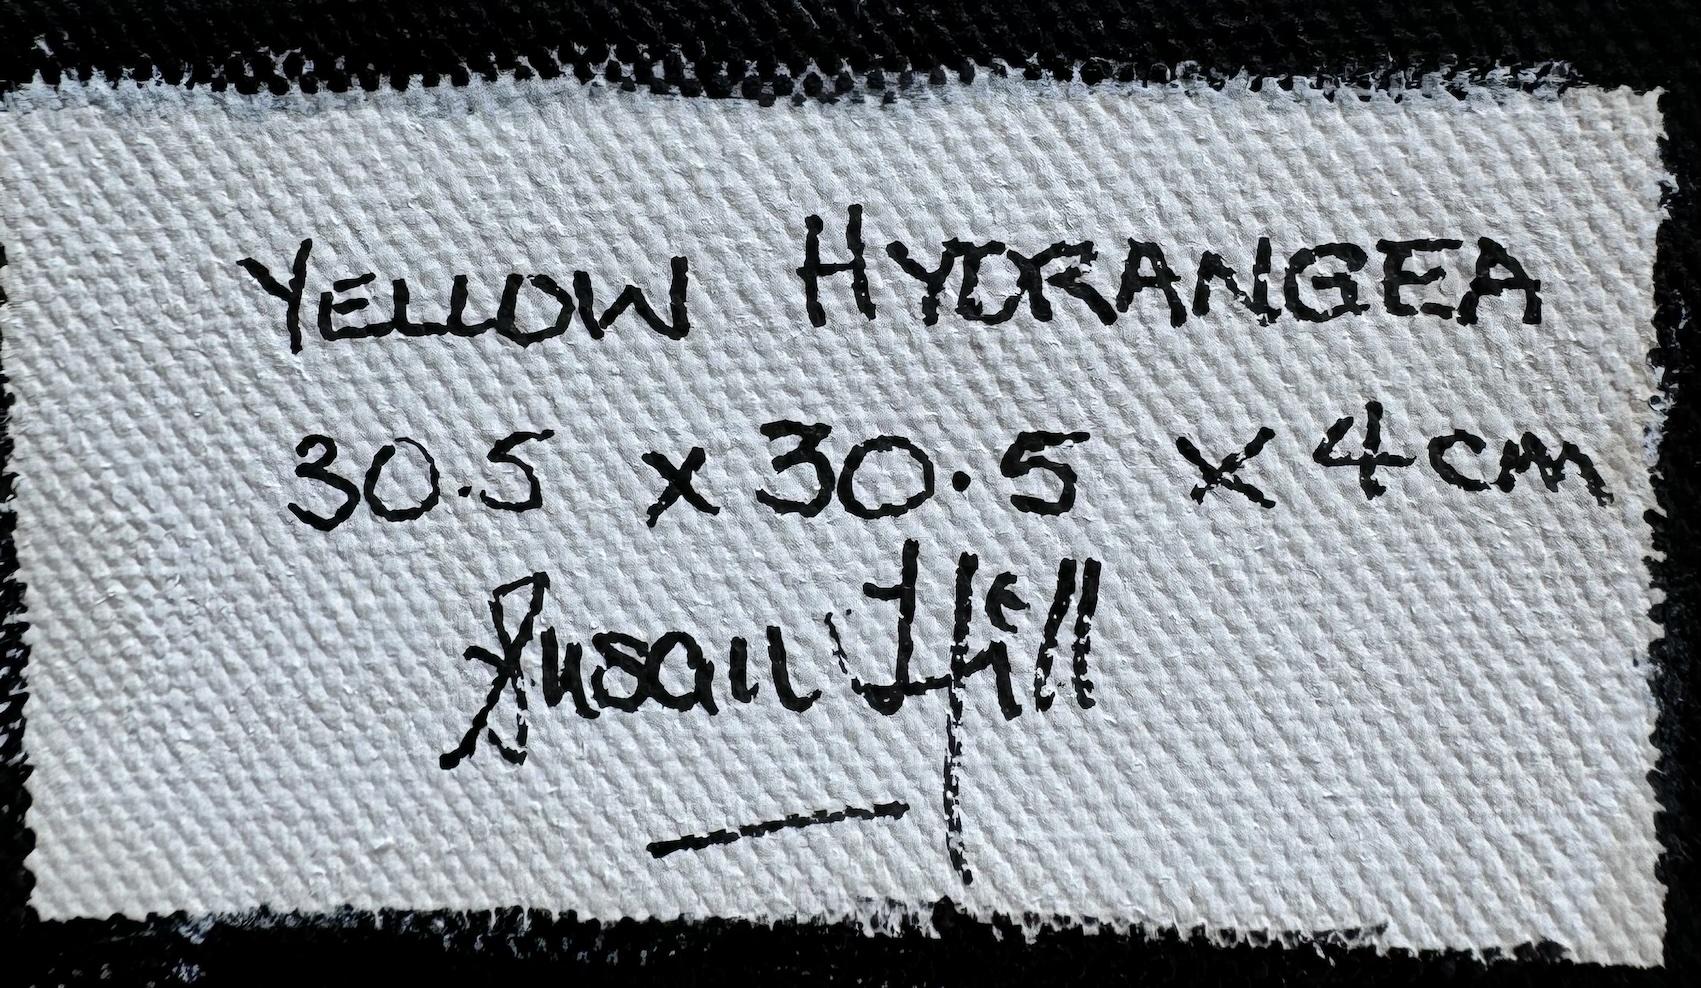 YELLOW HYDRANGEA
30.5 x 30.5 x 4cm
Susan Hill